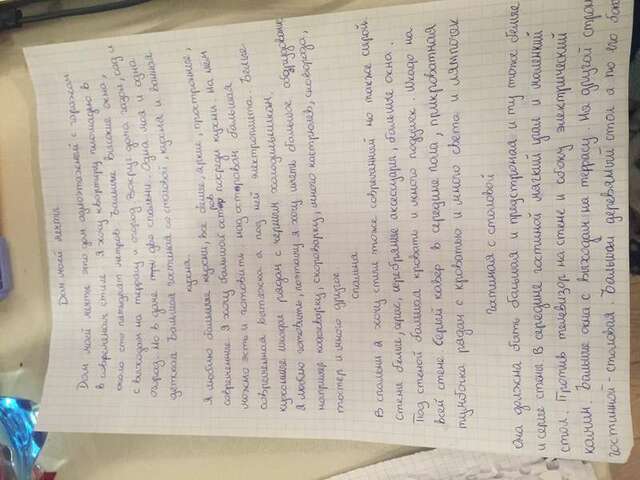 Дом моей мечты
Дом моей мечты это дом одноэтажней с горожом
в современом стиле. Я хочу квартиру площадю в
около сто пятьдесят метров. Балшие высокие окно,
с выходам на террасу и огород. Вокруг дома газон, сад и
огород. Но в даме две спальни. Одна моя и одна
детская. Балшая гостиная со столовой, кухня и ванная
кухна.
Я люблю балшие кухни, все белие, яркие, просторние,
современние. Я хочу балшой остров посреди кухни. На нём
можно эсть и готовить. над островам балшая
современная вытяжка а под ней электроплита. Белие
кухонние шкафи рядам с черним холодильникам.
Я люблю готовить, поэтому я хочу иметь большое абарудование
например кофеварку, скороварку, много кастрюлев, сковорода,
тостер и много другое.
спальна
В спальни я хочу стиль тоже совреманний но также сирой.
Стени белие, серие, серебряние аксессуари, балшие окна.
Под стеной балшая кровать и много подушек. Шкафо на
всей стене. Серий кавёр в середине пола, прикроватная
тумбочка рядам с кроватью и много света и лямпочек
Гастиная с столовой
Она должна быть балшая и предстроная и ту тоже белие
и серие стены. В середине гостиной мягкий угал и маленкий
стол. Против телевизор на стене и обоку электрический
камин. Балшие окна с выходам на террасу. На другой строне
гостинной - столовая. Балшой деревяный стол а по его бока